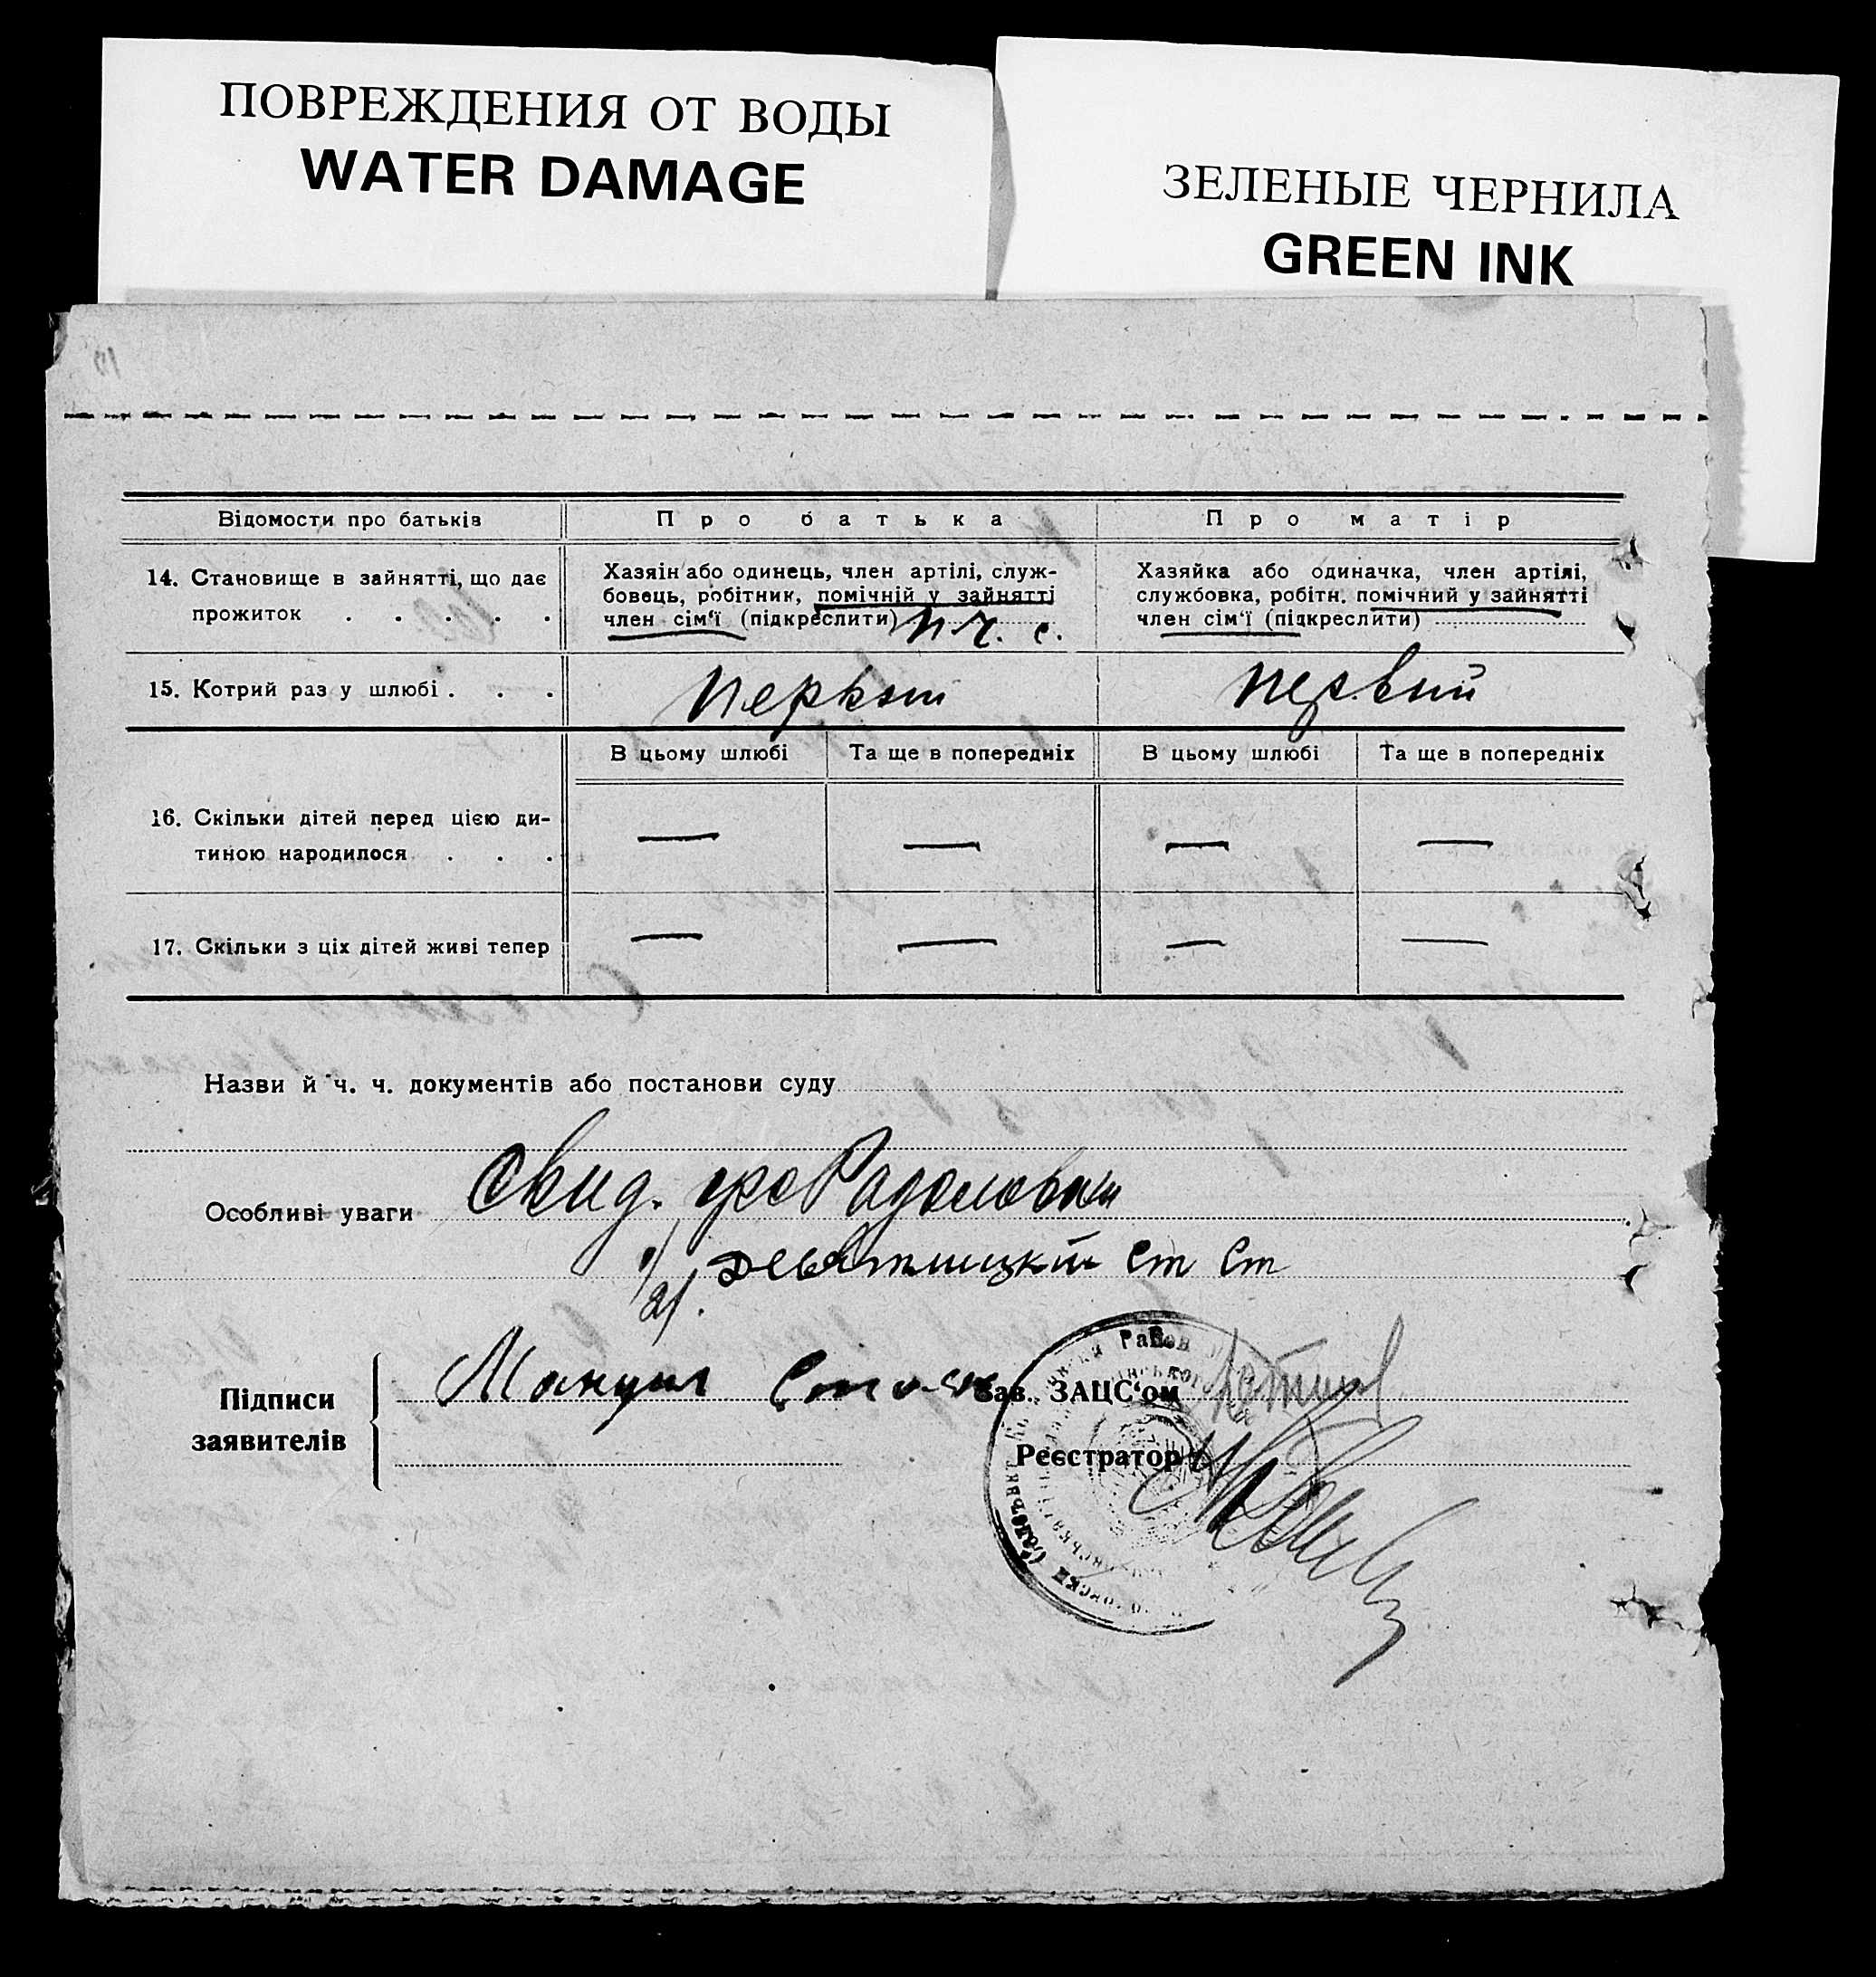 ПОВРЕЖДЕНИЯ ОТ ВОДЫ
WATER DAMAGE
ЗЕЛЕНЫЕ ЧЕРНИЛА
GREEN INK
Відомости про батьків
Про батька
Про матір
14. Становище в зайнятті, що дає
прожиток . . . . .
Хазяін або одинець, член артілі, служ-
бовець, робітник, помічній у зайнятті
член сім'ї (підкреслити) п. г. с.
Хазяйка або одиначка, член артілі,
службовка, робітн. помічний у зайнятті
член сім'ї (підкреслити)
15. Котрий раз у шлюбі . . .
первый
первый
В цьому шлюбі
Та ще в попередніх
В цьому шлюбі
Та ще в попередніх
16. Скільки дітей перед цією ди-
тиною народилося . . .
— — — —
17. Скільки з ціх дітей живі тепер
— — — —
Назви й ч. ч. документів або постанови суду
Особливі уваги Свид.
1/
2/. Ст Ст
Підписи
заявителів
Зав. ЗАЦС'ом
Реєстратор
Район